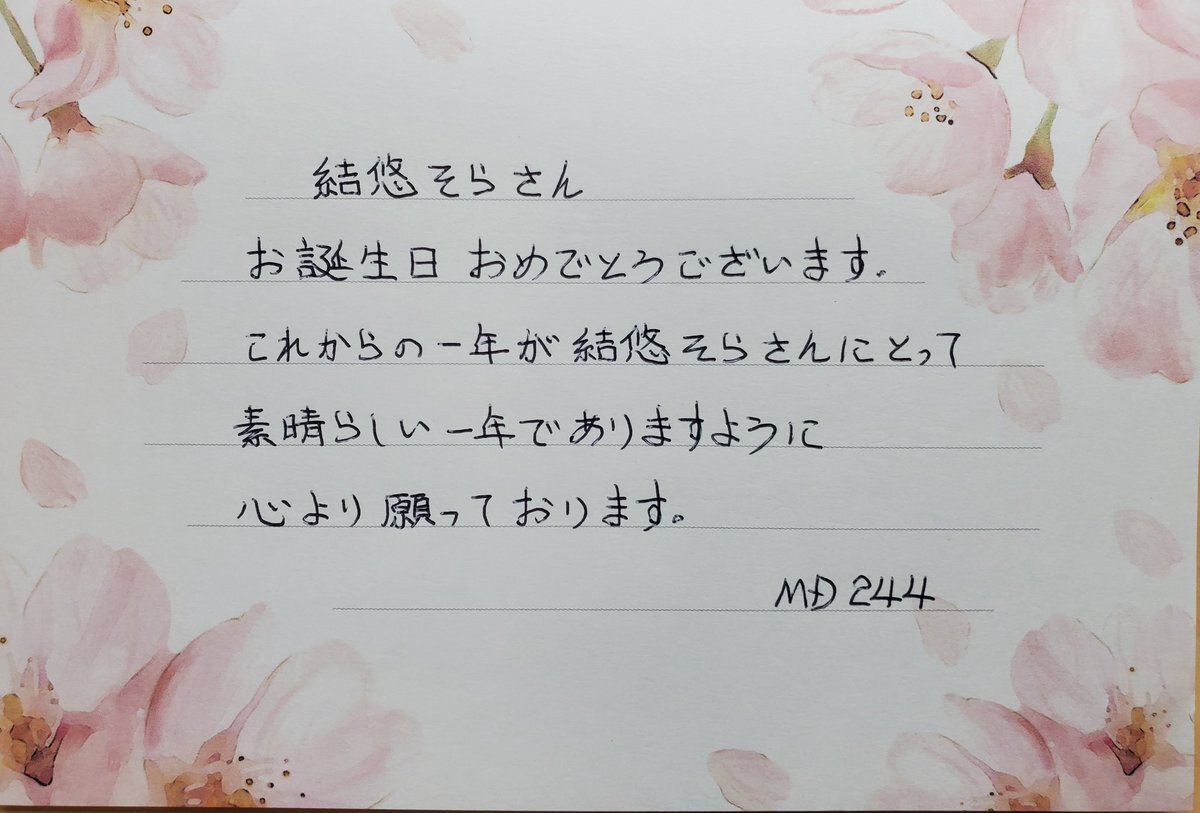 結悠そらさん
お誕生日 おめでとうございます。
これからの一年が結悠そらさんにとって
素晴らしい一年でありますように
心より願っております。
MD 244